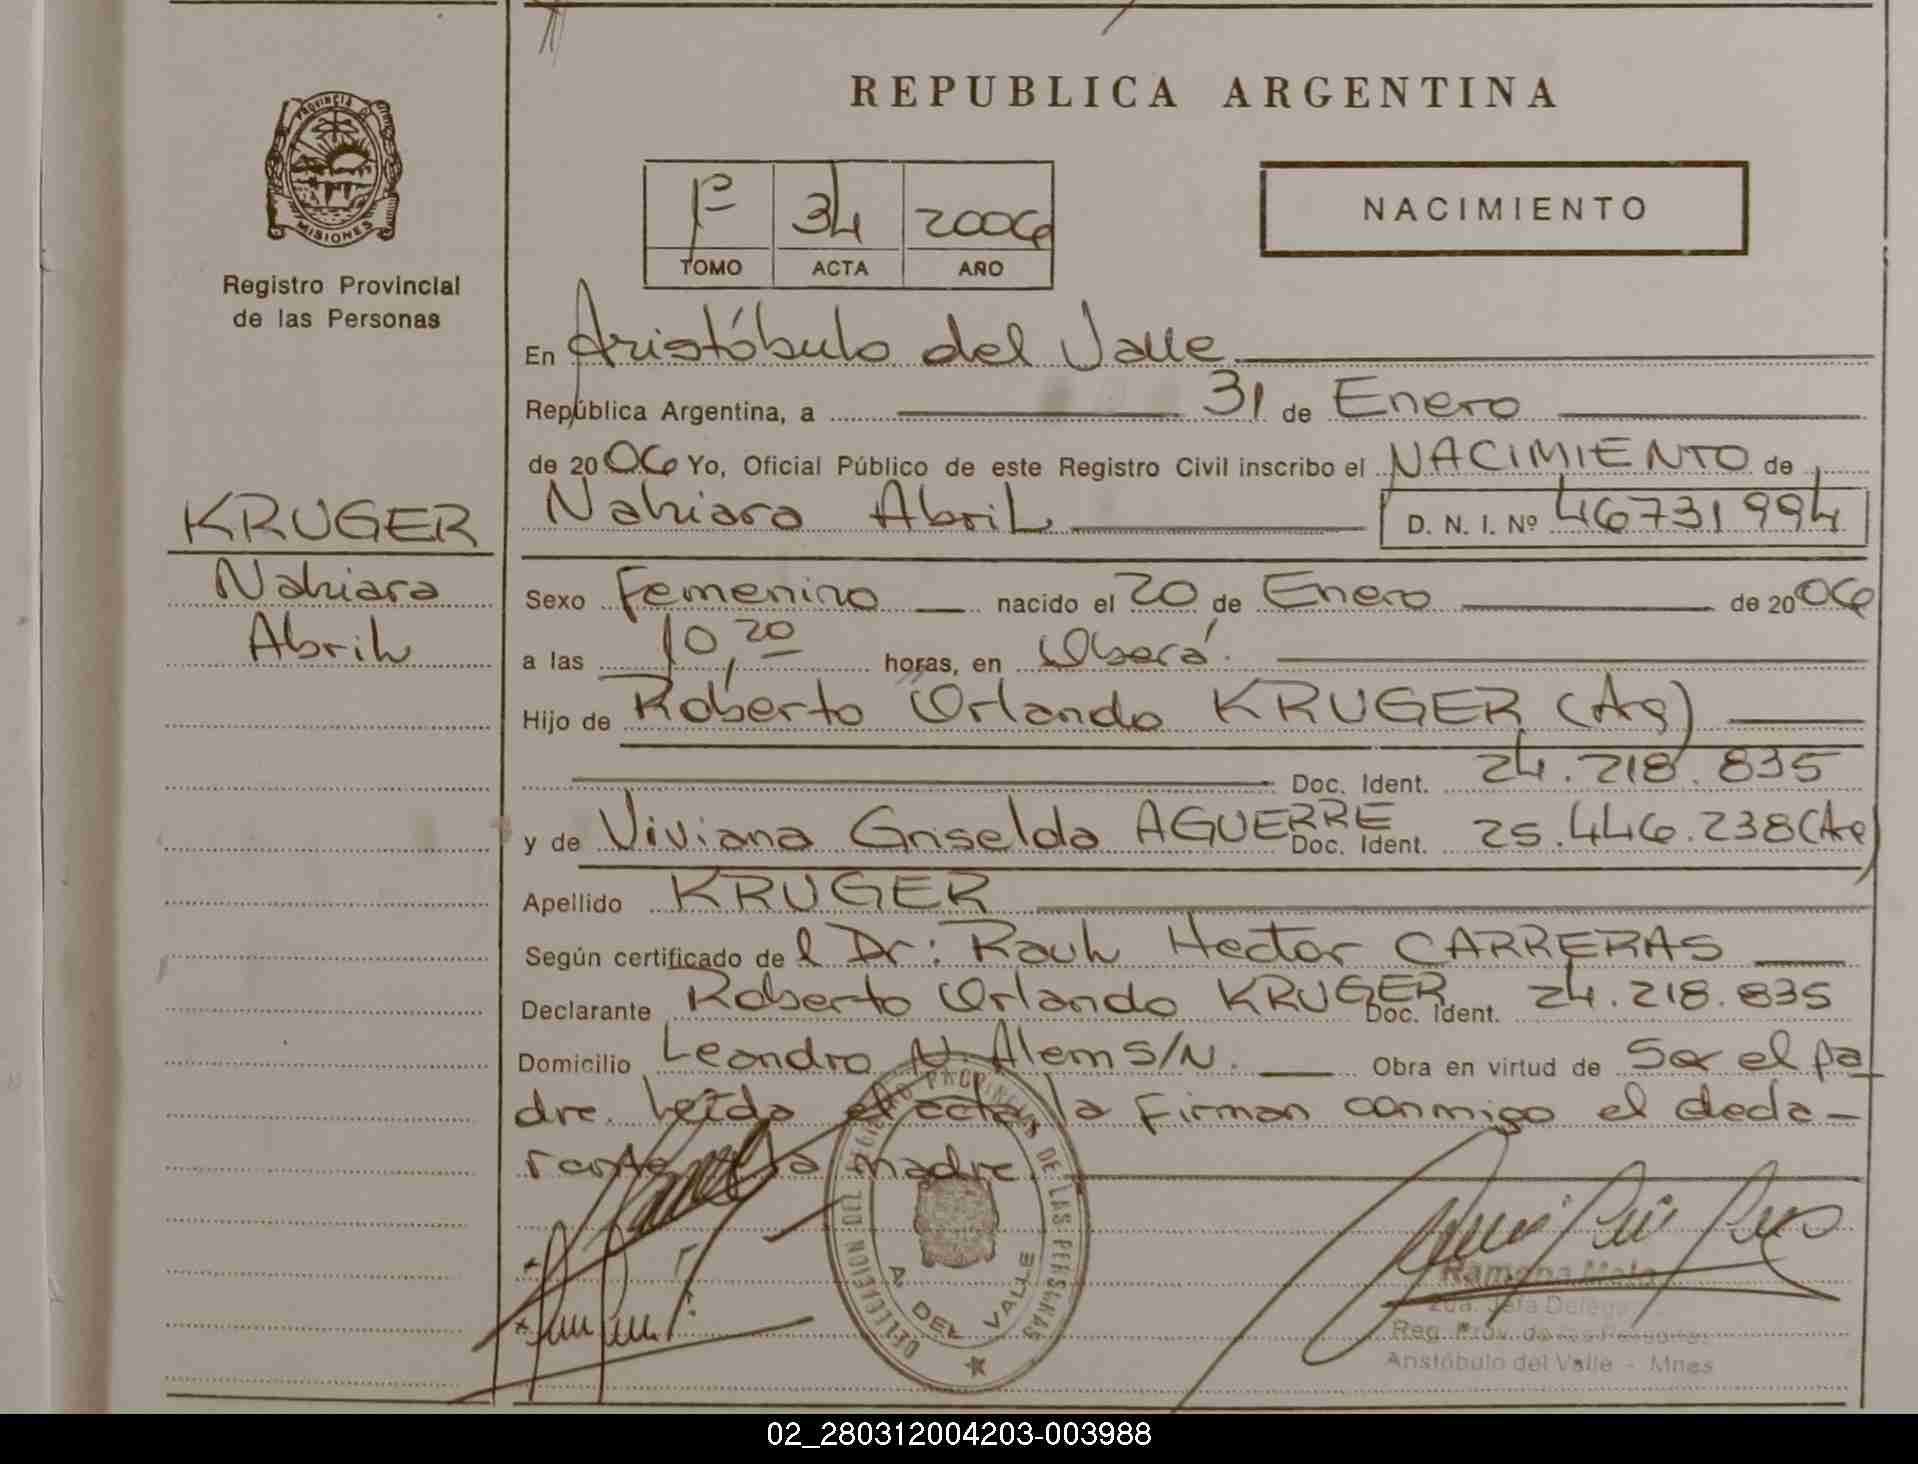 REPUBLICA ARGENTINA
PROVINCIA DE
MISIONES
Registro Provincial
de las Personas
1º 34 2006
TOMO ACTA AÑO
NACIMIENTO
En Aristóbulo del Valle
República Argentina, a 31 de Enero
de 2006 Yo, Oficial Público de este Registro Civil inscribo el NACIMIENTO de
Nahiara Abril D. N. I. Nº 46731994
KRUGER
Nahiara
Abril
Sexo Femenino nacido el 20 de Enero de 2006
a las 10,20 horas, en Oberá.
Hijo de Roberto Orlando KRUGER (Ag)
Doc. Ident. 24.218.835
y de Viviana Griselda AGUERRE Doc. Ident. 25.446.238 (Ag)
Apellido KRUGER
Según certificado del Dr: Raul Hector CARRERAS
Declarante Roberto Orlando KRUGER Doc. Ident. 24.218.835
Domicilio Leandro N. Alem S/N. Obra en virtud de Ser el pa
dre. Leída el acta, la Firman conmigo el decla-
rante la madre.
DELEGACION DEL REGISTRO PROVINCIAL DE LAS PERSONAS
A. DEL VALLE
Ramona
2da. Jefa Deleg.
Reg. Prov. de las Personas
Aristóbulo del Valle - Mnes
02_280312004203-003988